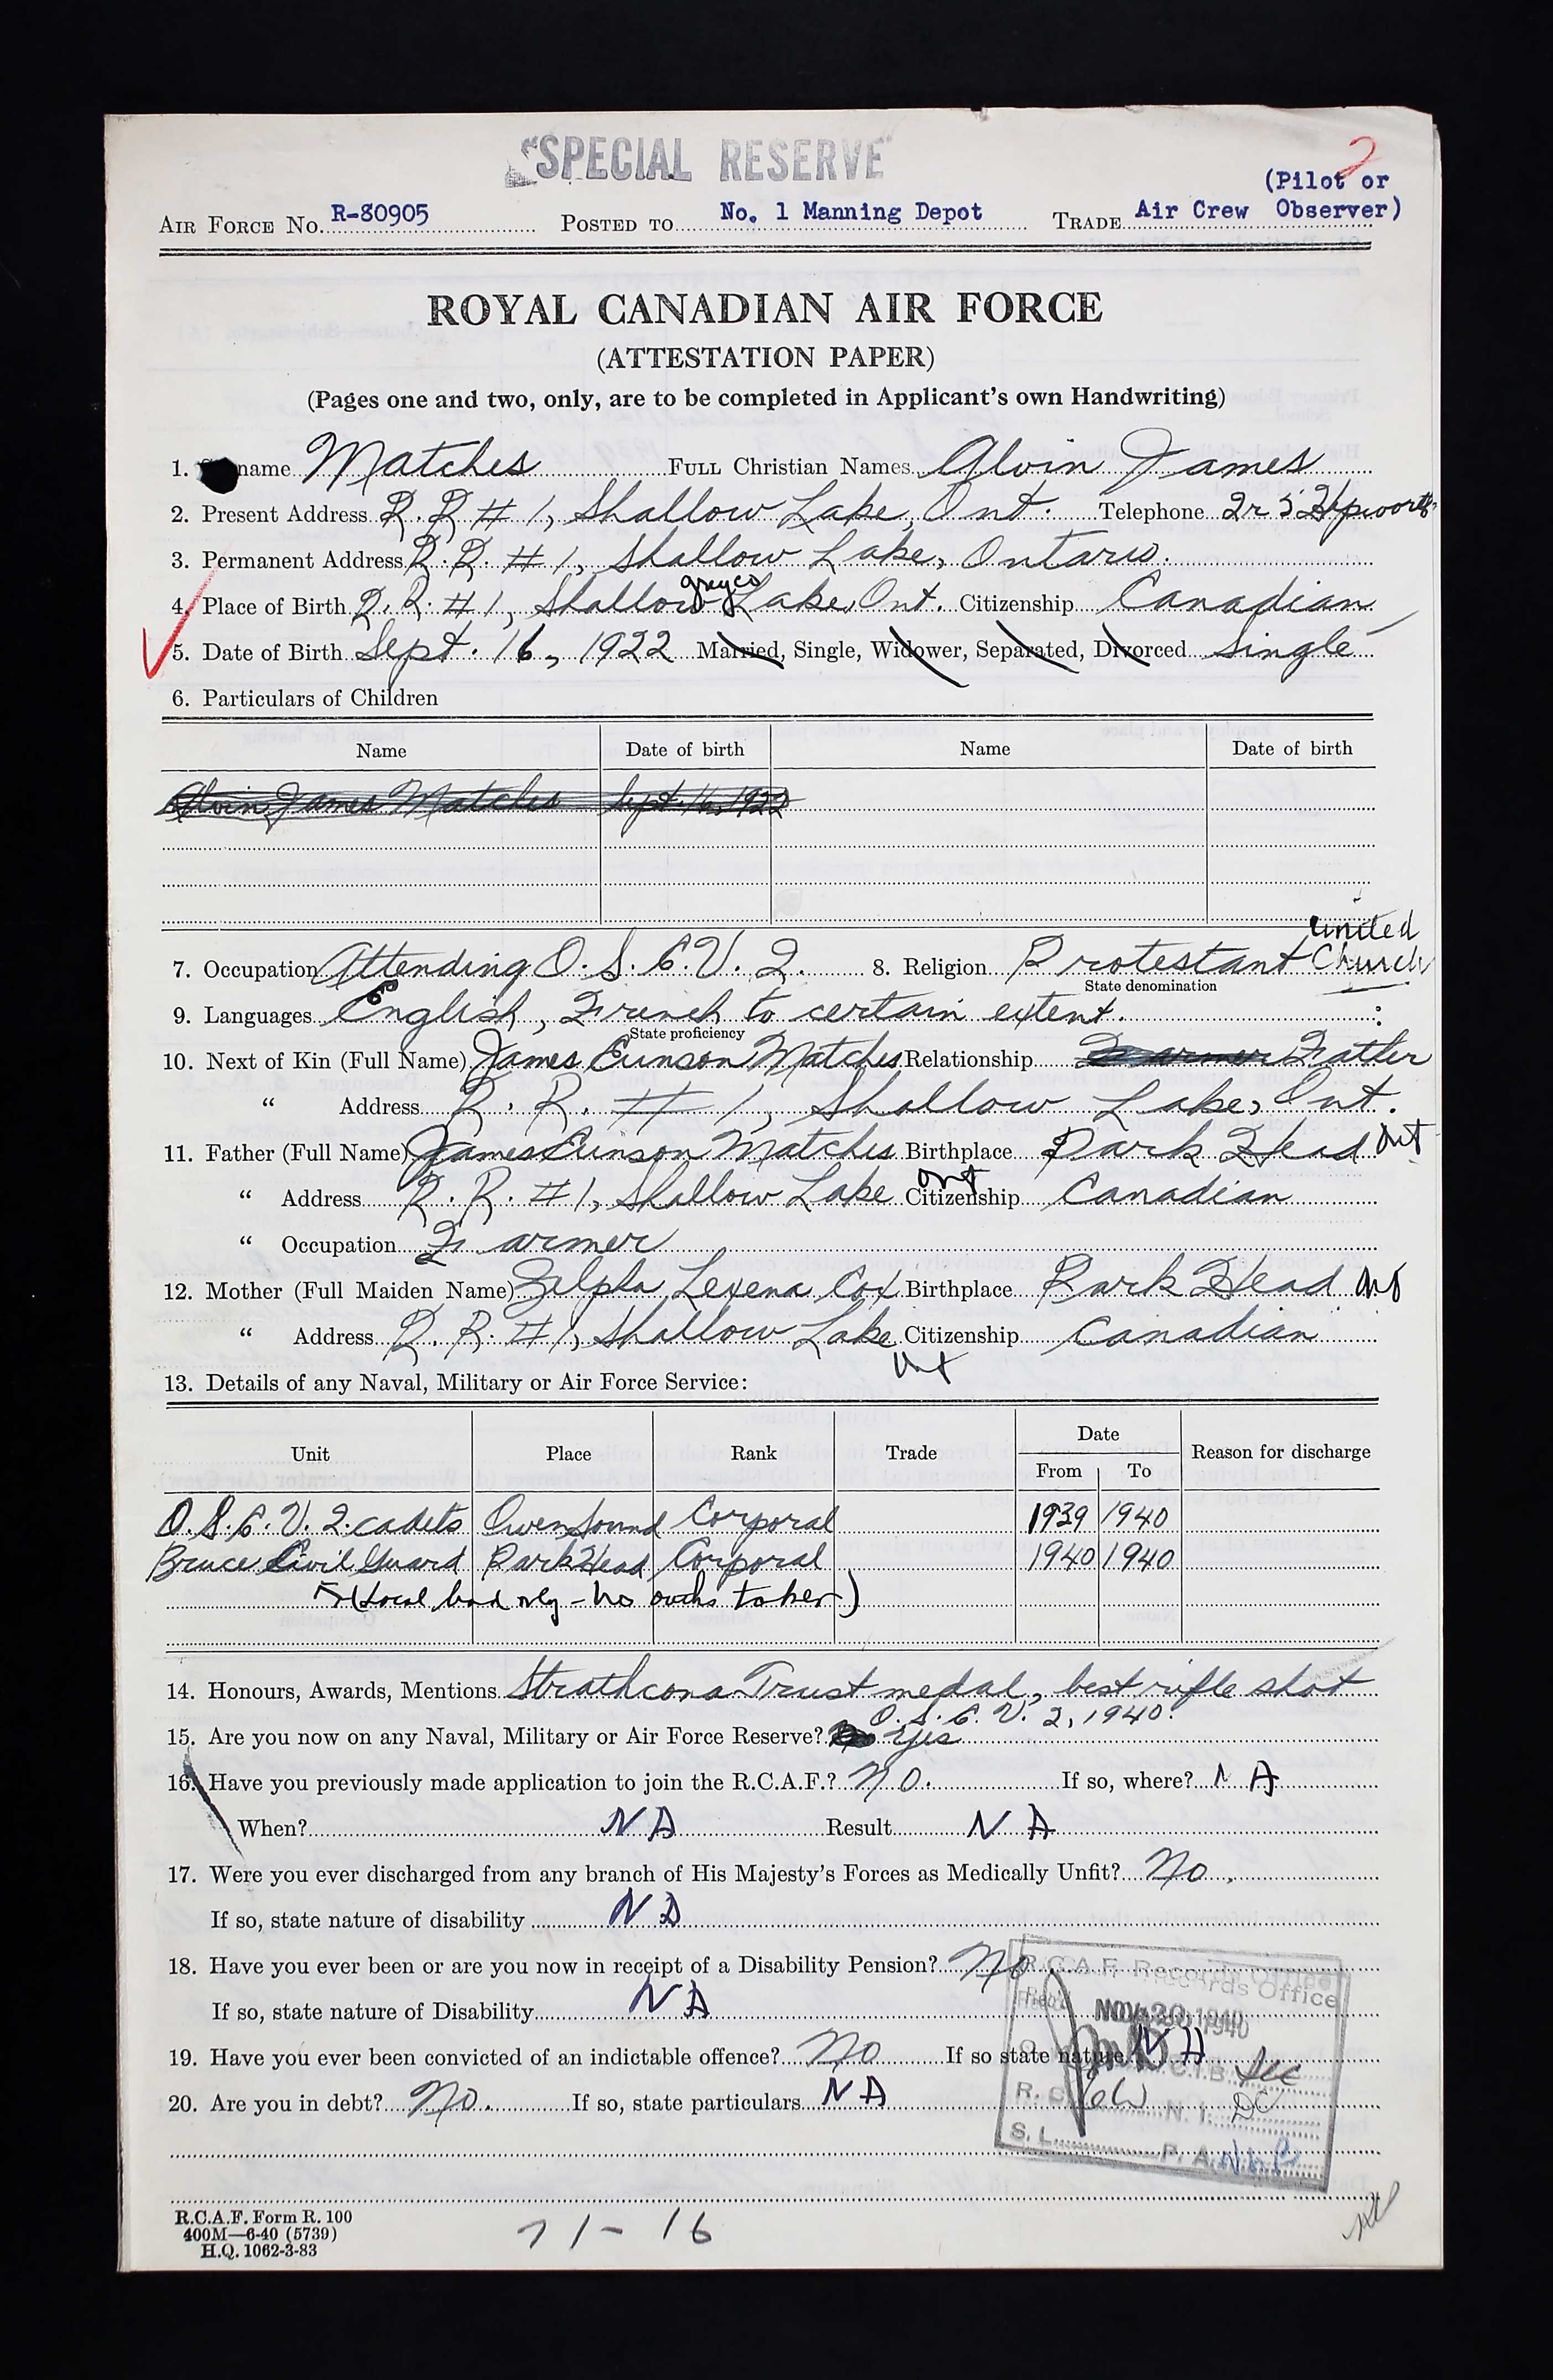 "SPECIAL RESERVE"
2
(Pilot or
AIR FORCE NO. R-80905 POSTED TO No. 1 Manning Depot TRADE Air Crew Observer)
ROYAL CANADIAN AIR FORCE
(ATTESTATION PAPER)
(Pages one and two, only, are to be completed in Applicant's own Handwriting)
1. name Matches FULL Christian Names Alvin James
2. Present Address R.R #1, Shallow Lake, Ont. Telephone 2r 5 Hepworth
3. Permanent Address R.R. #1, Shallow Lake, Ontario.
grey co
4. Place of Birth R.R. #1, Shallow Lake, Ont. Citizenship Canadian
5. Date of Birth Sept. 16, 1922 Married, Single, Widower, Separated, Divorced single
6. Particulars of Children
Name Date of birth Name Date of birth
Alvin James Matches Sept. 16, 1922
United
7. Occupation Attending O.S.C.V.I. 8. Religion Protestant Church
State denomination
9. Languages English, French to certain extent.
State proficiency
10. Next of Kin (Full Name) James Eunson Matches Relationship Farmer Father
" Address R.R. #1, Shallow Lake, Ont.
11. Father (Full Name) James Eunson Matches Birthplace Park Head Ont
" Address R.R. #1, Shallow Lake Ont Citizenship Canadian
" Occupation Farmer
12. Mother (Full Maiden Name) Zelpha Lexena Cox Birthplace Park Head Ont
" Address R.R. #1, Shallow Lake Citizenship Canadian
Ont
13. Details of any Naval, Military or Air Force Service:
Unit Place Rank Trade Date Reason for discharge
From To
O.S.C.V.I. cadets Owen Sound Corporal 1939 1940
Bruce Civil Guard Park Head Corporal 1940 1940
(Local only - no oaths taken)
14. Honours, Awards, Mentions Strathcona Trust medal, best rifle shot
O.S.C.V.I., 1940.
15. Are you now on any Naval, Military or Air Force Reserve? Yes
16. Have you previously made application to join the R.C.A.F.? No. If so, where? N A
When? N A Result N A
17. Were you ever discharged from any branch of His Majesty's Forces as Medically Unfit? No.
If so, state nature of disability N A
18. Have you ever been or are you now in receipt of a Disability Pension? No.
If so, state nature of Disability N A
R.C.A.F. Records Office
NOV 20 1940
19. Have you ever been convicted of an indictable offence? No If so state nature N A
C.I.B.
20. Are you in debt? No. If so, state particulars N A
R. N. I. DC
S. L. P. A.
R.C.A.F. Form R. 100
400M—6-40 (5739)
H.Q. 1062-3-83
71-16